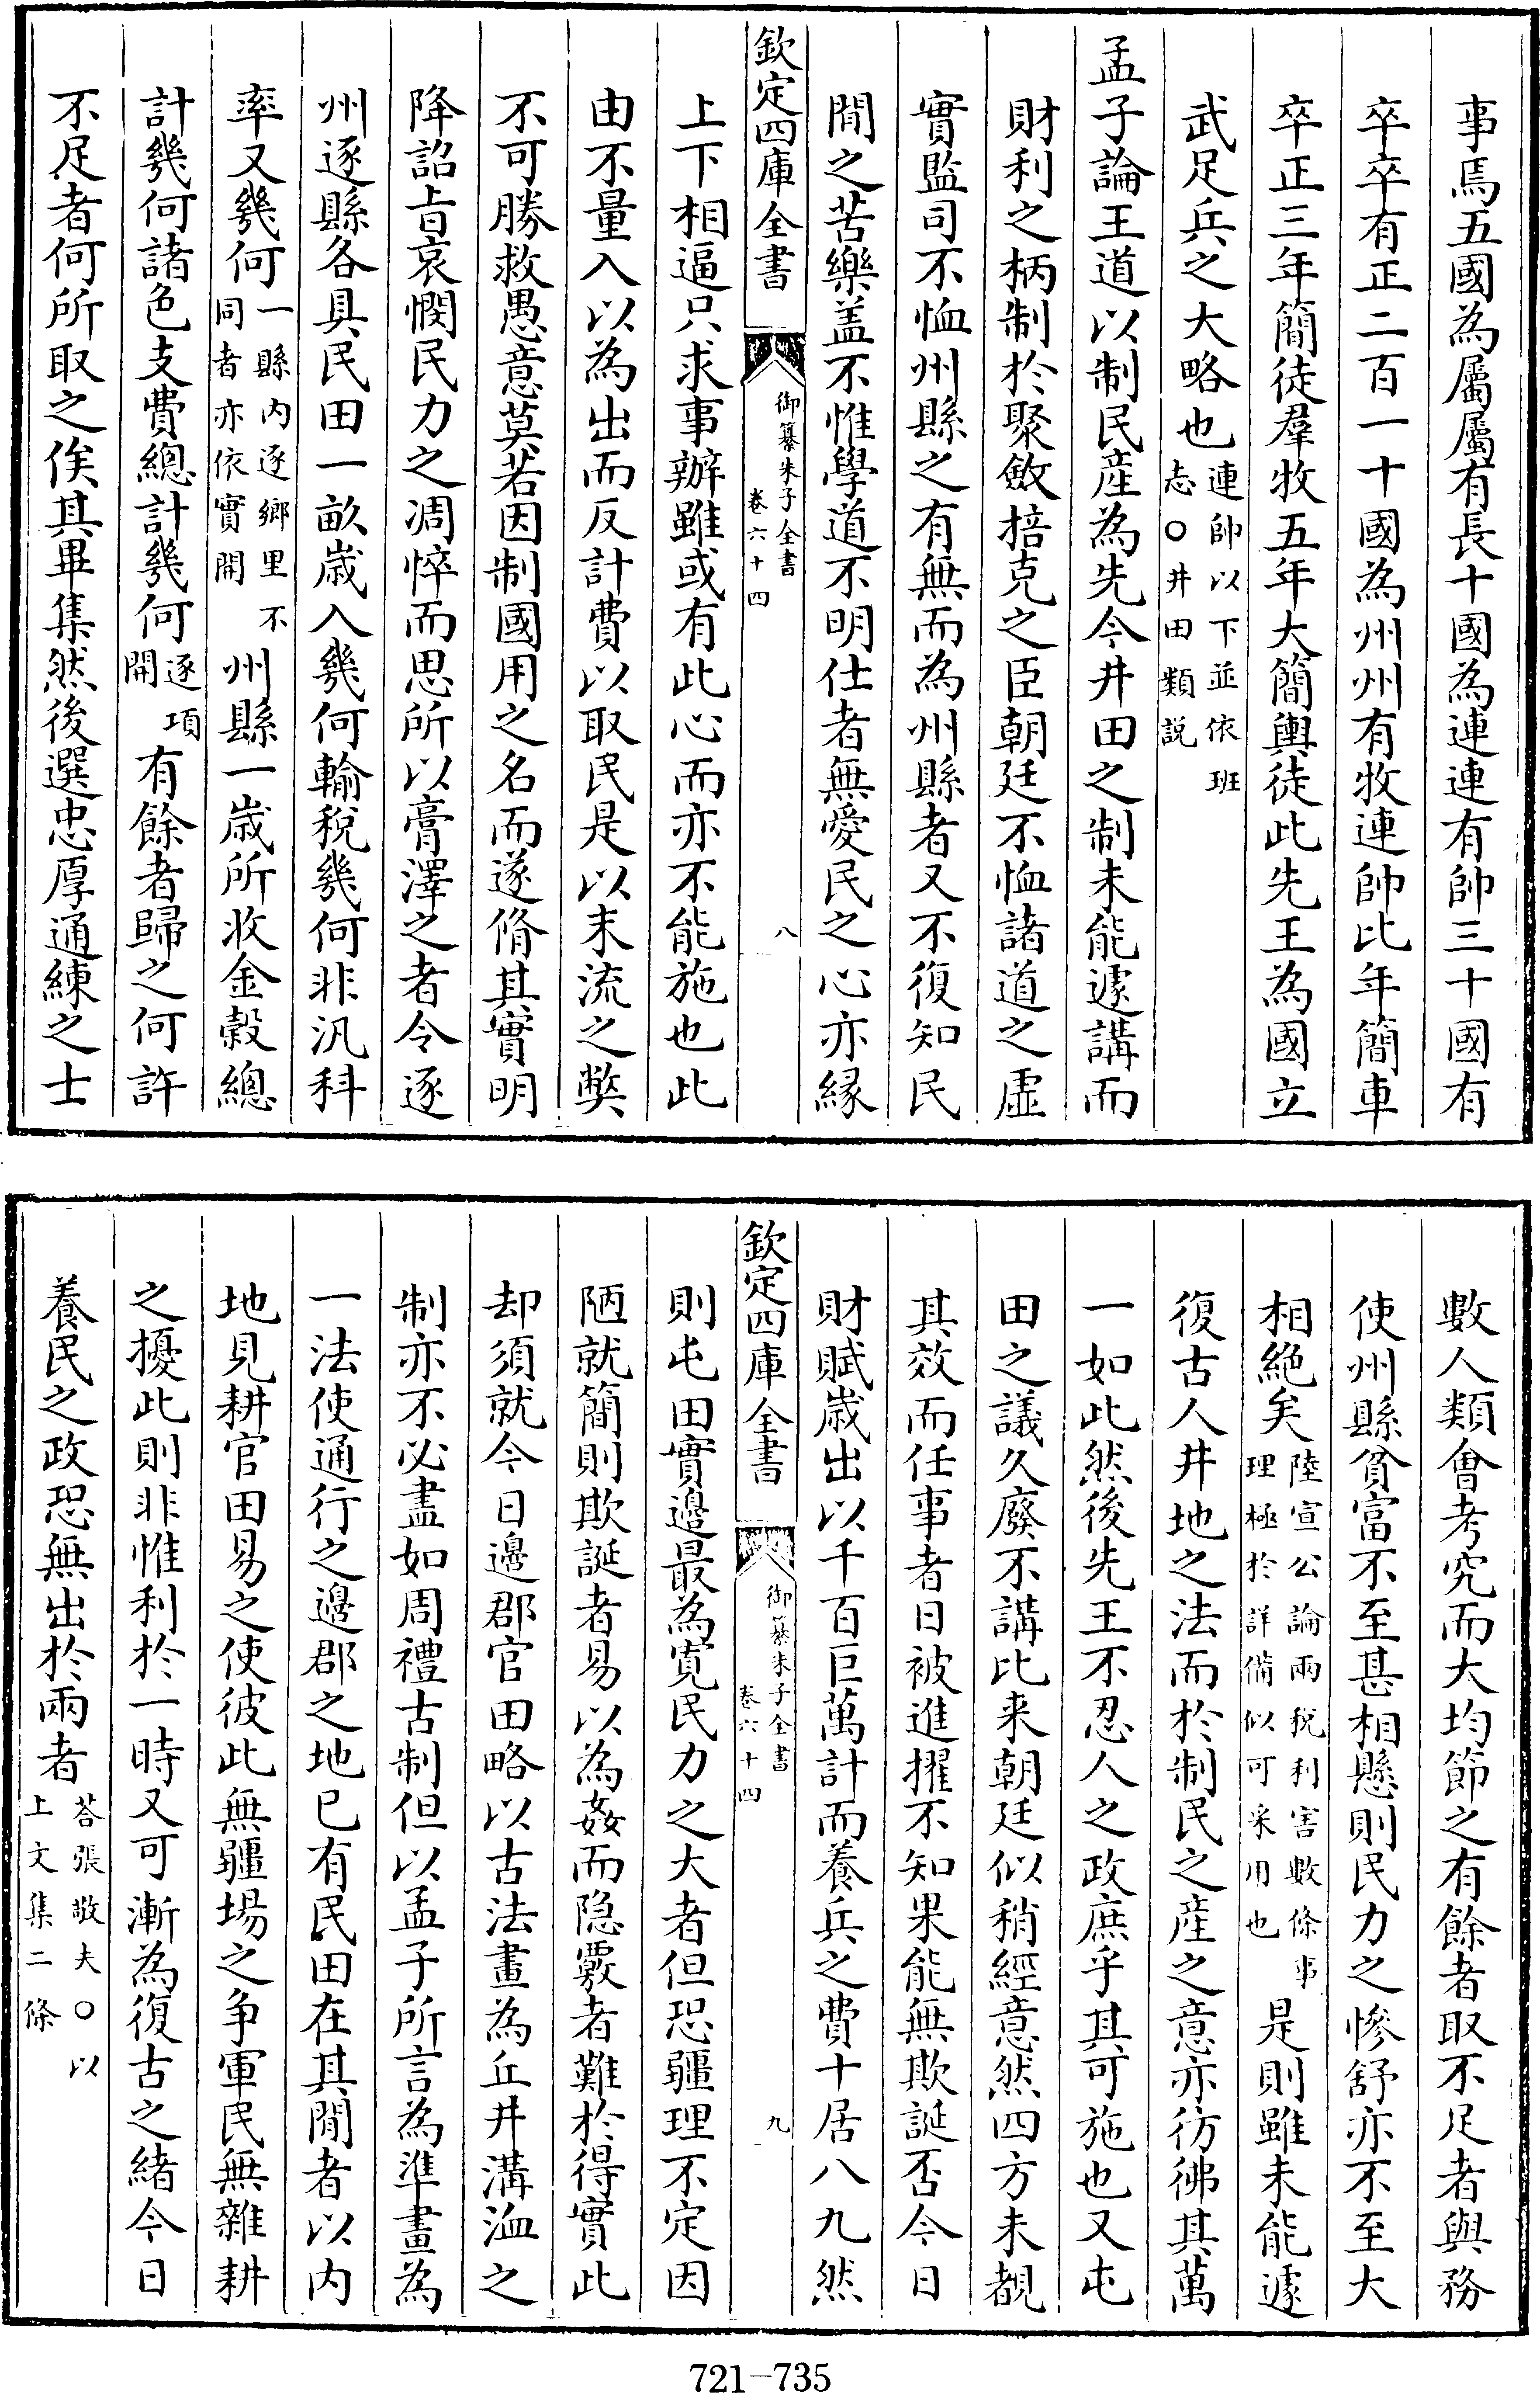 事焉五國為屬屬有長十國為連連有帥三十國有
卒卒有正二百一十國為州州有牧連帥比年簡車
卒正三年簡徒羣牧五年大簡輿徒此先王為國立
武足兵之大略也連帥以下並依班志○井田類説
孟子論王道以制民産為先今井田之制未能遽講而
財利之柄制於聚斂掊克之臣朝廷不恤諸道之虛
實監司不恤州縣之有無而為州縣者又不復知民
間之苦樂盖不惟學道不明仕者無愛民之心亦縁
欽定四庫全書
御纂朱子全書
卷六十四
八
上下相逼只求事辦雖或有此心而亦不能施也此
由不量入以為出而反計費以取民是以末流之弊
不可勝救愚意莫若因制國用之名而遂脩其實明
降詔㫖哀憫民力之凋悴而思所以膏澤之者令逐
州逐縣各具民田一畝歳入幾何輸税幾何非汎科
率又幾何一縣内逐鄉里不同者亦依實開州縣一歳所收金穀總
計幾何諸色支費總計幾何逐項開有餘者歸之何許
不足者何所取之俟其畢集然後選忠厚通練之士
數人類會考究而大均節之有餘者取不足者與務
使州縣貧富不至甚相懸則民力之慘舒亦不至大
相絶矣陸宣公論兩税利害數條事理極於詳備似可采用也是則雖未能遽
復古人井地之法而於制民之産之意亦彷彿其萬
一如此然後先王不忍人之政庶乎其可施也又屯
田之議久廢不講比来朝廷似稍經意然四方未覩
其效而任事者日被進擢不知果能無欺誕否今日
財賦歳出以千百巨萬計而養兵之費十居八九然
欽定四庫全書
御纂朱子全書
卷六十四
九
則屯田實邊最為寛民力之大者但恐疆理不定因
陋就簡則欺誕者易以為姦而隐覈者難於得實此
却須就今日邊郡官田略以古法畫為丘井溝洫之
制亦不必盡如周禮古制但以孟子所言為準畫為
一法使通行之邊郡之地已有民田在其間者以内
地見耕官田易之使彼此無疆場之争軍民無雜耕
之擾此則非惟利於一時又可漸為復古之緒今日
養民之政恐無出於兩者荅張敬夫○以上文集二條
721-735